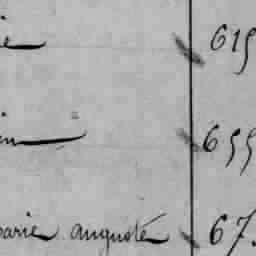 e 615
in 655
parie augusté 67